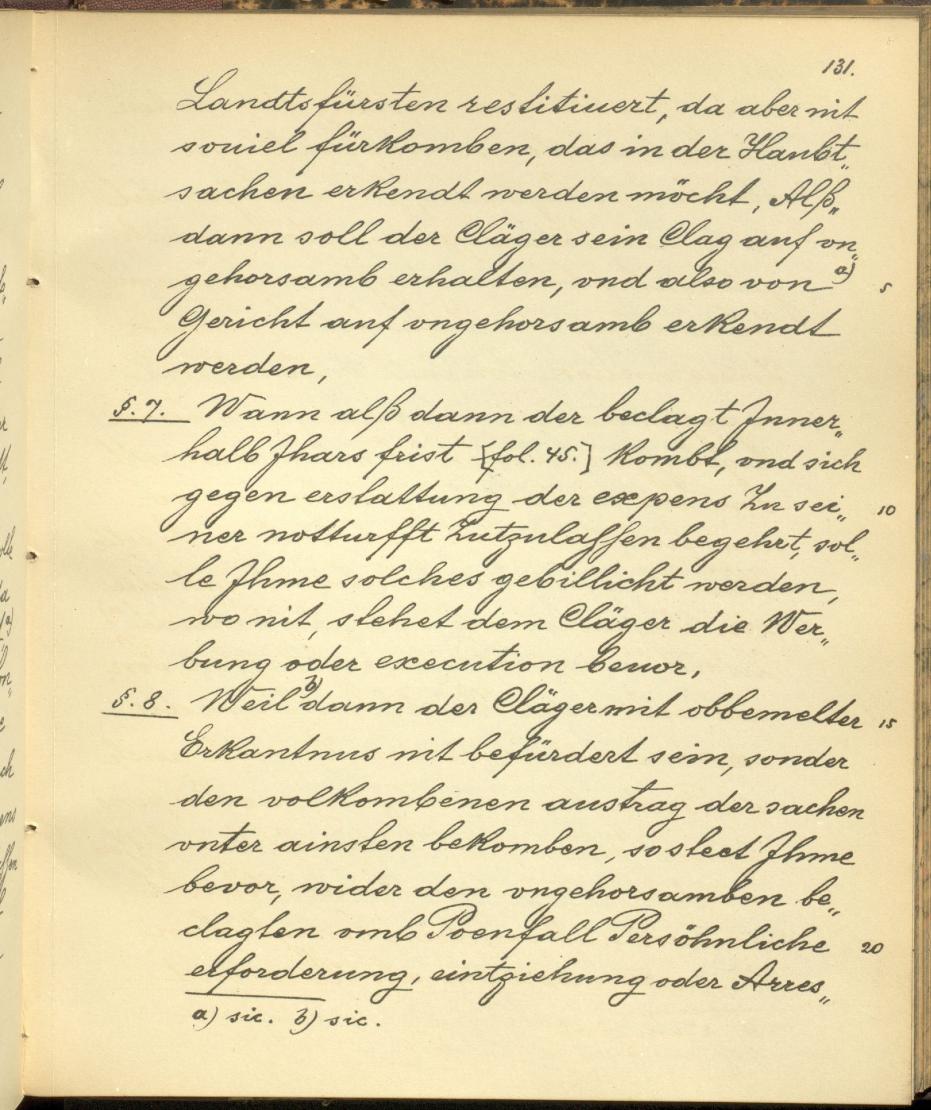 131.
Landtsfürsten restituert, da aber nit
souiel fürkomben, das in der Haubt„
sachen erkendt werden möcht, Alß„
dann soll der Cläger sein Clag auf vn„
gehorsamb erhalten, vnd also von a) 5
Gericht auf vngehorsamb erkendt
werden,
§. 7. Wann alß dann der beclagt Inner„
halb Jhars frist [fol. 45.] kombt, vnd sich
gegen erstattung der expens Zu sei„ 10
ner notturfft Zutzulassen begehrt, sol„
le Ihme solches gebillicht werden,
wo nit, stehet dem Cläger die Wer„
bung oder execution beuor.
§. 8. Weil b) dann der Cläger mit obbemelter 15
Erkantnus nit befürdert sein, sonder
den volkombenen austrag der sachen
vnter ainsten bekomben, so steet Ihme
bevor, wider den vngehorsamben be„
clagten vmb Poenfall Persöhnliche 20
erforderung, eintziehung oder Arres„
a) sic. b) sic.